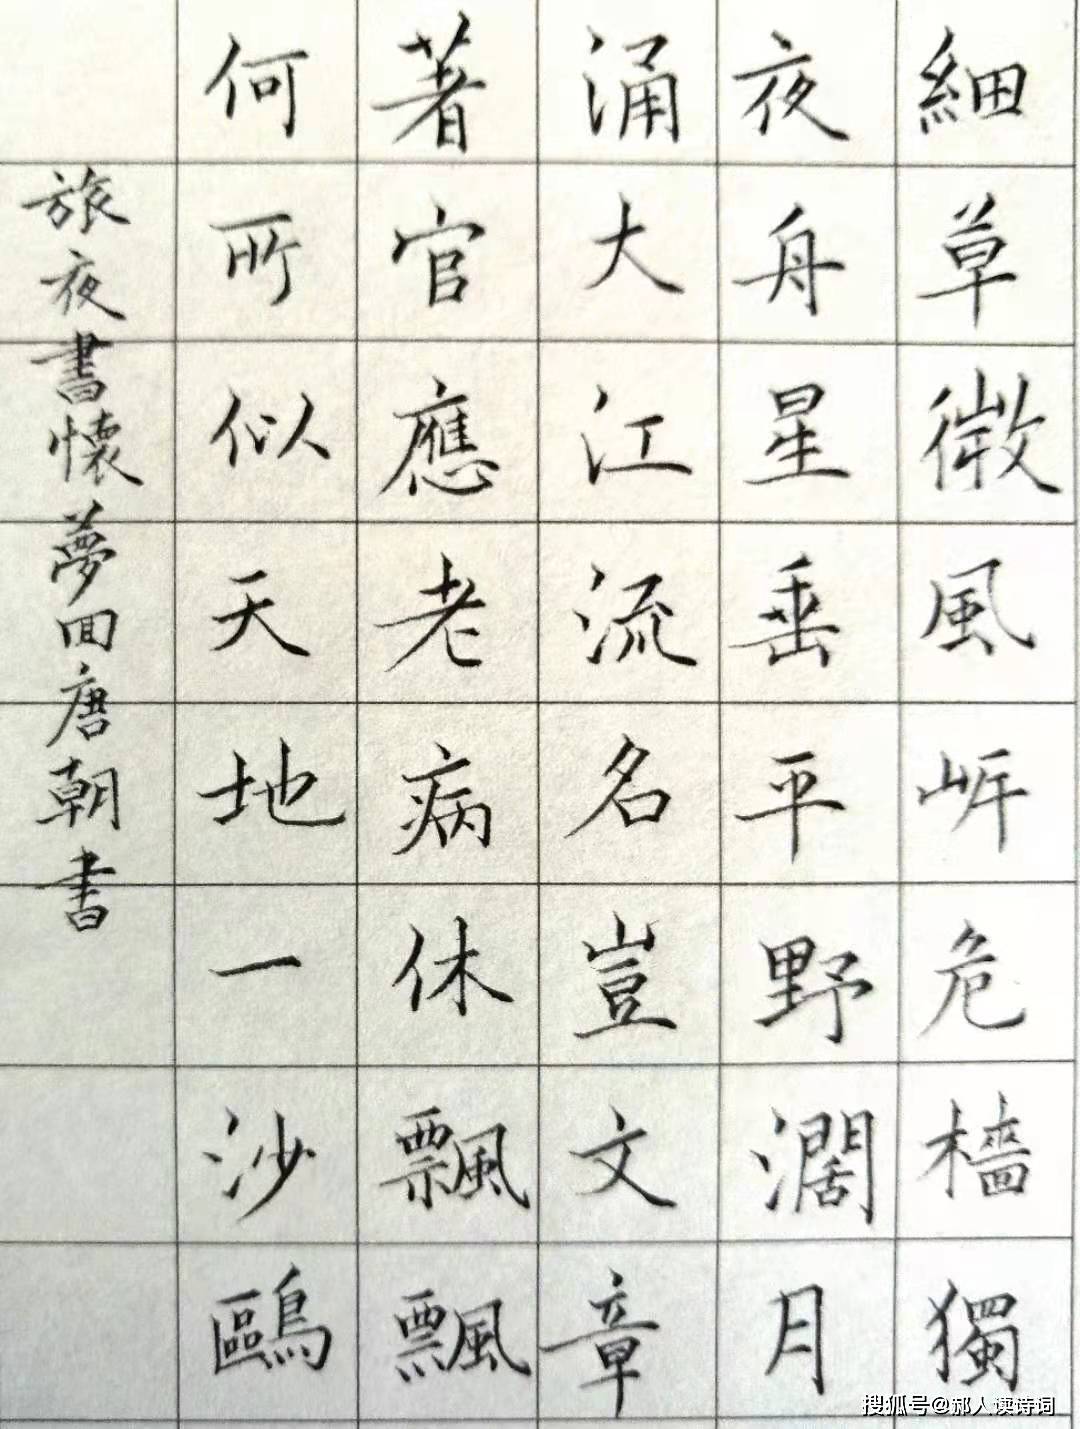 細草微風岓危檣獨
夜舟星垂平野濶月
涌大江流名豈文章
著官應老病休飄飄
何所似天地一沙鷗
旅夜書懷夢回唐朝書
搜狐号@郝人读诗词